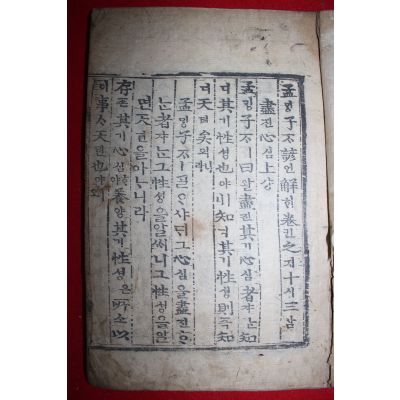 孟ᄆᆡᆼ子ᄌᆞ諺언解ᄒᆡ卷권之지十십三삼
盡진心심上샹
孟ᄆᆡᆼ子ᄌᆞㅣ曰왈盡진其기心심者쟈ᄂᆞᆫ知
디其기性셩也야ㅣ니知디其기性셩則즉知
디天텬矣의니라
孟ᄆᆡᆼ子ᄌᆞㅣᄀᆞᆯᄋᆞ샤ᄃᆡ그心심을盡진ᄒᆞ
ᄂᆞᆫ者쟈ᄂᆞᆫ그性셩을알ᄊᆡ니그性셩을알
면天텬을아ᄂᆞ니라
存존其기心심ᄒᆞ야養양其기性셩은所소以
이事ᄉᆞ天텬也야ㅣ오